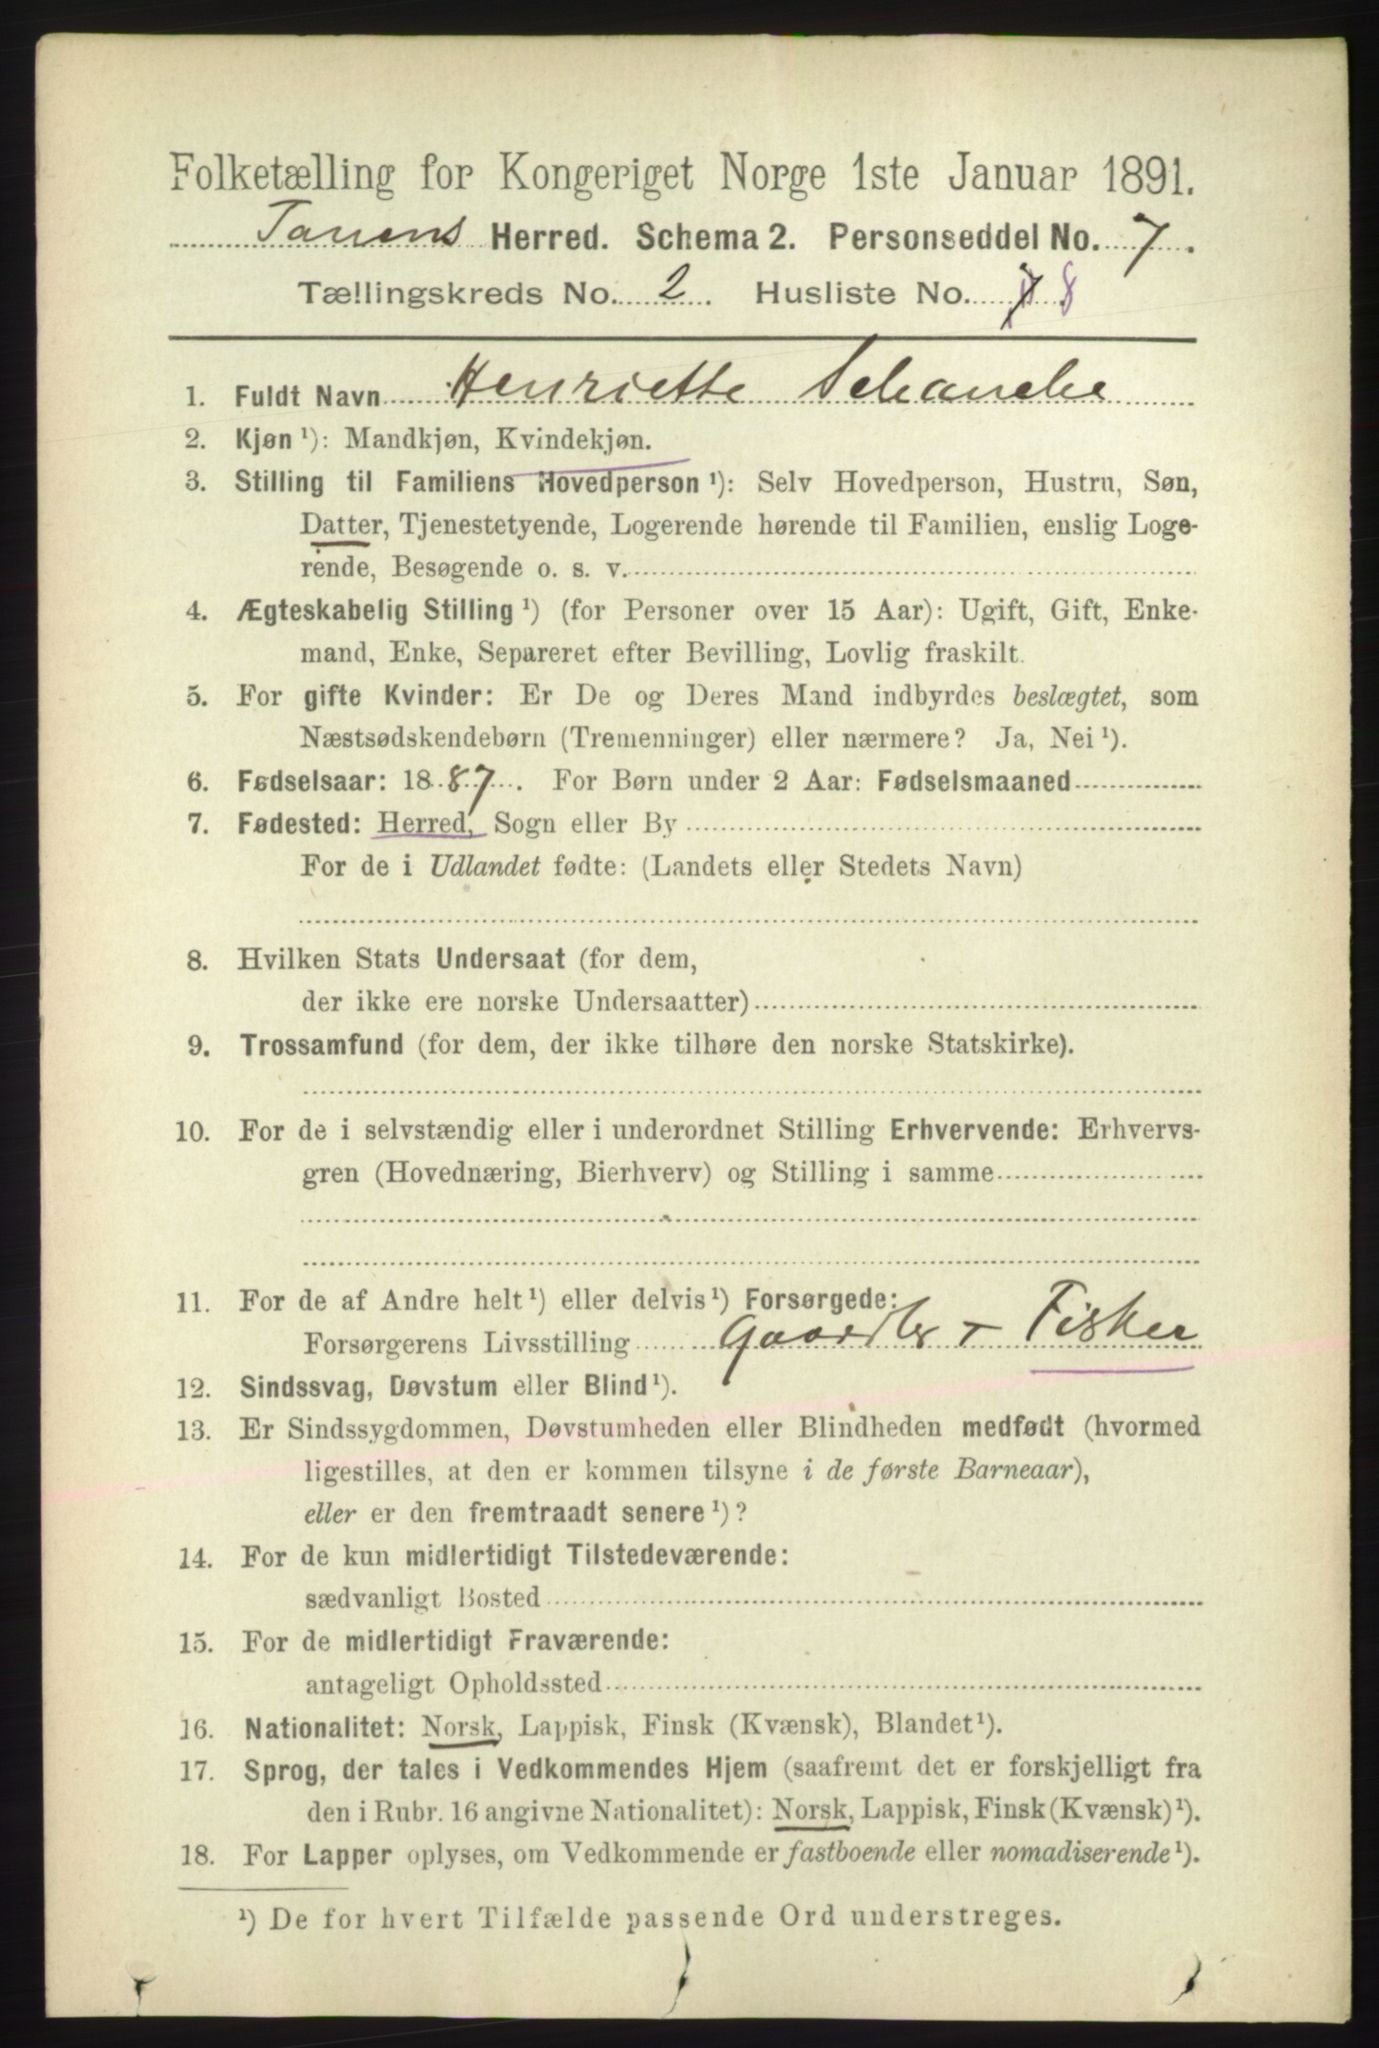 Folketælling for Kongeriget Norge 1ste Januar 1891.
Tanens Herred. Schema 2. Personseddel No. 7.
Tællingskreds No. 2. Husliste No. 8
1. Fuldt Navn Henriette Schanche
2. Kjøn ¹): Mandkjøn, Kvindekjøn.
3. Stilling til Familiens Hovedperson ¹): Selv Hovedperson, Hustru, Søn,
Datter, Tjenestetyende, Logerende hørende til Familien, enslig Loge-
rende, Besøgende o. s. v.
4. Ægteskabelig Stilling ¹) (for Personer over 15 Aar): Ugift, Gift, Enke-
mand, Enke, Separeret efter Bevilling, Lovlig fraskilt.
5. For gifte Kvinder: Er De og Deres Mand indbyrdes beslægtet, som
Næstsødskendebørn (Tremenninger) eller nærmere? Ja, Nei ¹).
6. Fødselsaar: 1887. For Børn under 2 Aar: Fødselsmaaned
7. Fødested: Herred, Sogn eller By
For de i Udlandet fødte: (Landets eller Stedets Navn)
8. Hvilken Stats Undersaat (for dem,
der ikke ere norske Undersaatter)
9. Trossamfund (for dem, der ikke tilhøre den norske Statskirke).
10. For de i selvstændig eller i underordnet Stilling Erhvervende: Erhvervs-
gren (Hovednæring, Bierhverv) og Stilling i samme
11. For de af Andre helt ¹) eller delvis ¹) Forsørgede:
Forsørgerens Livsstilling Gaardbr + Fisker
12. Sindssvag, Døvstum eller Blind ¹).
13. Er Sindssygdommen, Døvstumheden eller Blindheden medfødt (hvormed
ligestilles, at den er kommen tilsyne i de første Barneaar),
eller er den fremtraadt senere ¹)?
14. For de kun midlertidigt Tilstedeværende:
sædvanligt Bosted
15. For de midlertidigt Fraværende:
antageligt Opholdssted
16. Nationalitet: Norsk, Lappisk, Finsk (Kvænsk), Blandet ¹).
17. Sprog, der tales i Vedkommendes Hjem (saafremt det er forskjelligt fra
den i Rubr. 16 angivne Nationalitet): Norsk, Lappisk, Finsk (Kvænsk) ¹).
18. For Lapper oplyses, om Vedkommende er fastboende eller nomadiserende ¹).
¹) De for hvert Tilfælde passende Ord understreges.